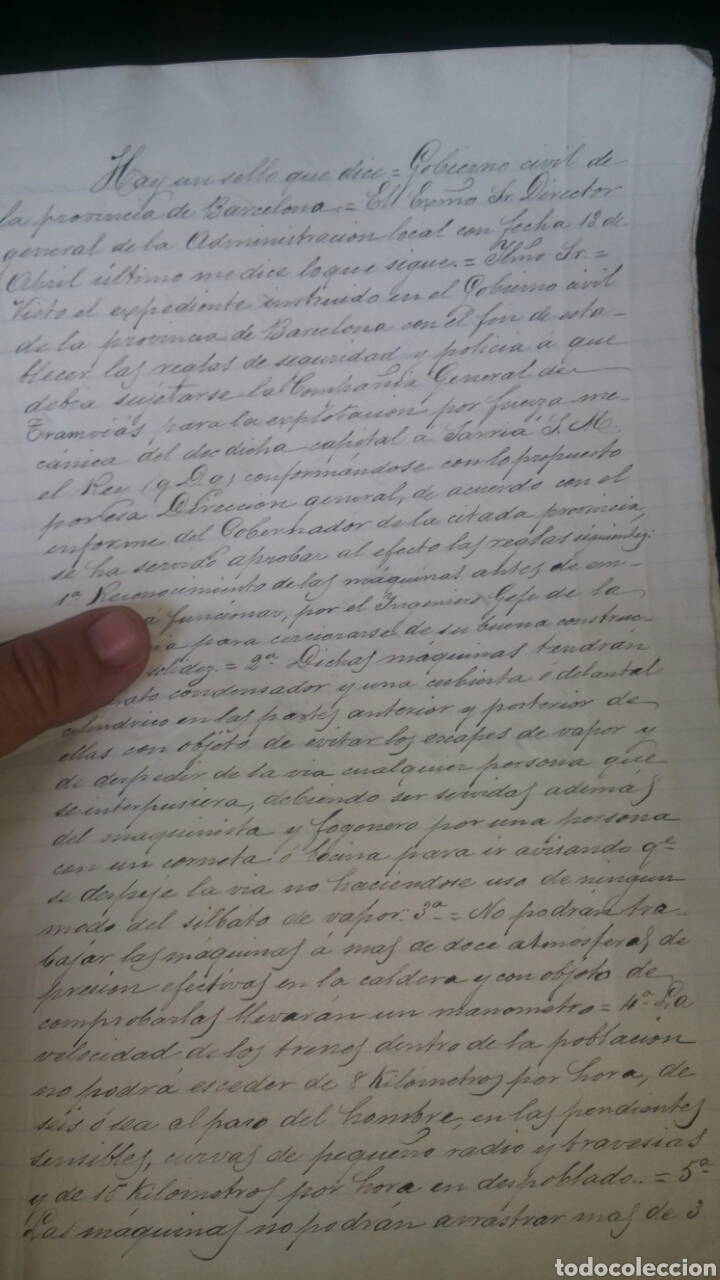 Hay un sello que dice = Gobierno civil de
la provincia de Barcelona = El Exmo Sr. Director
general de la Administracion local con fecha 13 de
Abril último me dice lo que sigue. = Ilmo Sr. =
Visto el expediente instruido en el Gobierno civil
de la provincia de Barcelona con el fin de esta-
blecer las reglas de seguridad y policia á que
debia sujetarse la Compañia General de
Tramvias para la explotacion por fuerza me-
cánica del de dicha capital a Sarriá S. M.
el Rey (q D. g) conformándose con lo propuesto
por esa Direccion general, de acuerdo con el
informe del Gobernador de la citada provincia,
se ha servido aprobar al efecto las reglas siguientes:
1ª Reconocimiento de las máquinas antes de em-
a funcionar, por el Ingeniero Gefe de la
para cerciorarse de su buena construc-
solidez. = 2ª Dichas maquinas tendrán
condensador y una cubierta ó delantal
cilindrico en las partes anterior y posterior de
ellas con objeto de evitar los escapes de vapor y
de despedir de la via cualquier persona que
se interpusiera, debiendo ser servidas además
del maquinista y fogonero por una persona
con un corneta ó bocina para ir avisando qe
se despeje la via no haciendose uso de ningun
modo del silbato de vapor. 3ª = No podrán tra-
bajar las máquinas á mas de doce atmósferas de
presion efectivas en la caldera y con objeto de
comprobarlas llevarán un manometro = 4ª La
velocidad de los trenes dentro de la poblacion
no podrá esceder de 8 Kilómetros por hora, de
seis ó sea al paso del hombre, en las pendientes
sensibles, curvas de pequeño radio y travesias
y de 15 Kilometros por hora en despoblado. = 5ª
Las máquinas no podrán arrastrar mas de 3
todocoleccion